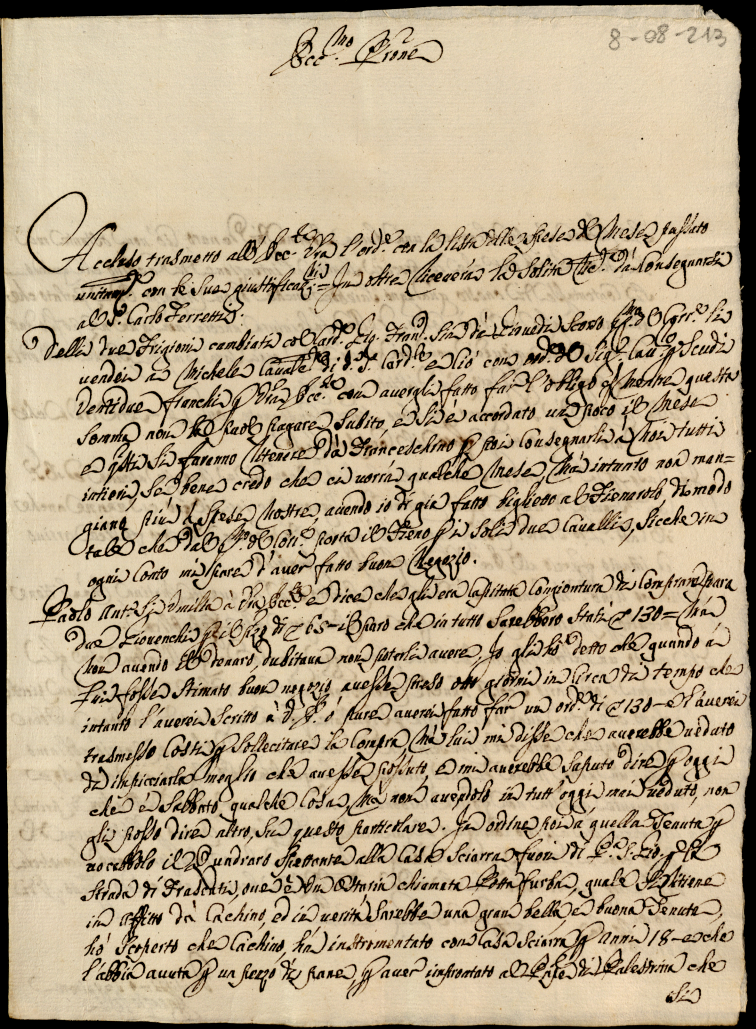 8-08-213
Ecc.mo Prone
Accluso trasmetto all' Ecc.za Vra l'ord.e con la lista delle spese del Mese passato
unitam.te con le sue giustificaz.ni = In oltre riceverà le solite da Consegnarsi
al S.r Carlo Ferretti.
Delli due Frigioni cambiati col Card.e fin da Giovedì scorso li
vendei a Michele Cavall. di d.o S.r Card.e e ciò con ord.e del Sig.r Cav.e p Scudi
Ventidue franchi p Vra Ecc.za con avergli fatto far l'obligo p mentre questa
somma non la può pagare subito, e si è accordato un poco il Mese
e questi si faranno ritenere da Franceschino p poi Consegnarli à Noi tutti
intieri, se bene credo che ci vorrà qualche Mese, Mà intanto non man=
giano più à spese Nostre, avendo io di già fatto biglietto al Fienarolo, dimodo
tale che dal p.o del Corr.e porta il Fieno p li soli due Cavalli, sicche in
ogni Conto mi pare d'aver fatto buon Negozio.
Paolo Ant.o si umilia à Vra Ecc.za e dice che gli era Capitata Congiontura di Comprare
due Giovenchi p il prezzo di 65 = il paro che in tutto sarebbero stati 130 = Mà
Non avendo il denaro, dubitava non poterli avere, Io gli hò detto che quando à
Lui fosse stimato buon negozio avesse preso otto giorni in Circa di tempo che
intanto l'averei scritto à V.E. ò pure averei fatto far un ord.e di 130 = e l'averei
trasmesso Costì p sollecitare la Compra, Mà lui mi disse che averebbe veduto
di impicciarla meglio che avesse possuto, e mi averebbe saputo dire p oggi
che è Sabbato qualche Cosa, Mà non avendolo in tutt'oggi mai veduto, non
gli posso dire altro, sù questo particolare. In ordine poi à quella Tenuta p
vocabolo il Quadraro spettante alla Casa Sciarra fuori di P.a S. Gio. p la
strada di Frascati, ove è un' Ostaria chiamata Porta furba, quale si ritiene
in affitto da Cachino, ed in verità sarebbe una gran bella e buona Tenuta,
hò scoperto che Cachino, hà instromentato con Casa Sciarra p anni 18 = e che
l'abbia avuta p un pezzo di pane, p aver improntato al P.npe di Palestrina che
si